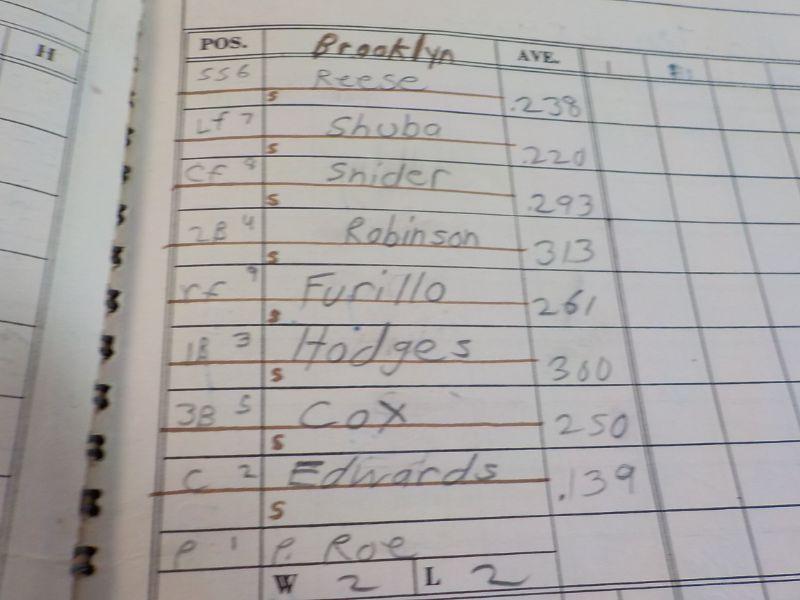 H
POS. Brooklyn AVE. 1
SS 6 Reese
S .238
Lf 7 Shuba
S .220
Cf 8 Snider
S .293
2B 4 Robinson
S 313
rf 9 Furillo
S 261
1B 3 Hodges
S 300
3B 5 Cox
S 250
C 2 Edwards
S .139
P 1 P. Roe
W 2 L 2